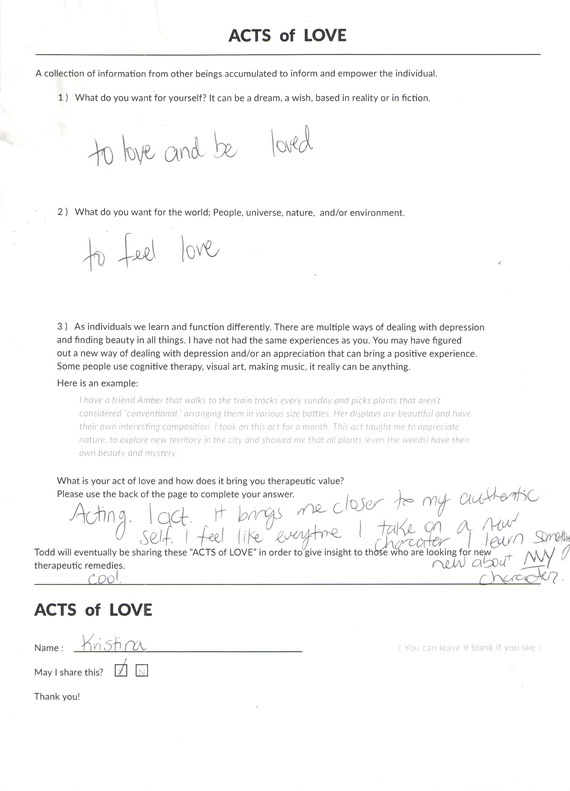 ACTS of LOVE
A collection of information from other beings accumulated to inform and empower the individual.
1 ) What do you want for yourself? It can be a dream, a wish, based in reality or in fiction.
to love and be loved
2 ) What do you want for the world; People, universe, nature, and/or environment.
to feel love
3 ) As individuals we learn and function differently. There are multiple ways of dealing with depression
and finding beauty in all things. I have not had the same experiences as you. You may have figured
out a new way of dealing with depression and/or an appreciation that can bring a positive experience.
Some people use cognitive therapy, visual art, making music, it really can be anything.
Here is an example:
I have a friend Amber that walks to the train tracks every sunday and picks plants that aren't
considered "conventional." arranging them in various size bottles. Her displays are beautiful and have
their own interesting composition. I took on this act for a month. This act taught me to appreciate
nature, to explore new territory in the city and showed me that all plants (even the weeds) have their
own beauty and mystery.
What is your act of love and how does it bring you therapeutic value?
Please use the back of the page to complete your answer.
Acting. I act. It brings me closer to my authentic
self. I feel like everytime I take on a new
character I learn something
new about MY
character.
Todd will eventually be sharing these "ACTS of LOVE" in order to give insight to those who are looking for new
therapeutic remedies.
cool.
ACTS of LOVE
Name : Kristina
( You can leave it blank if you like )
May I share this? Y N
Thank you!